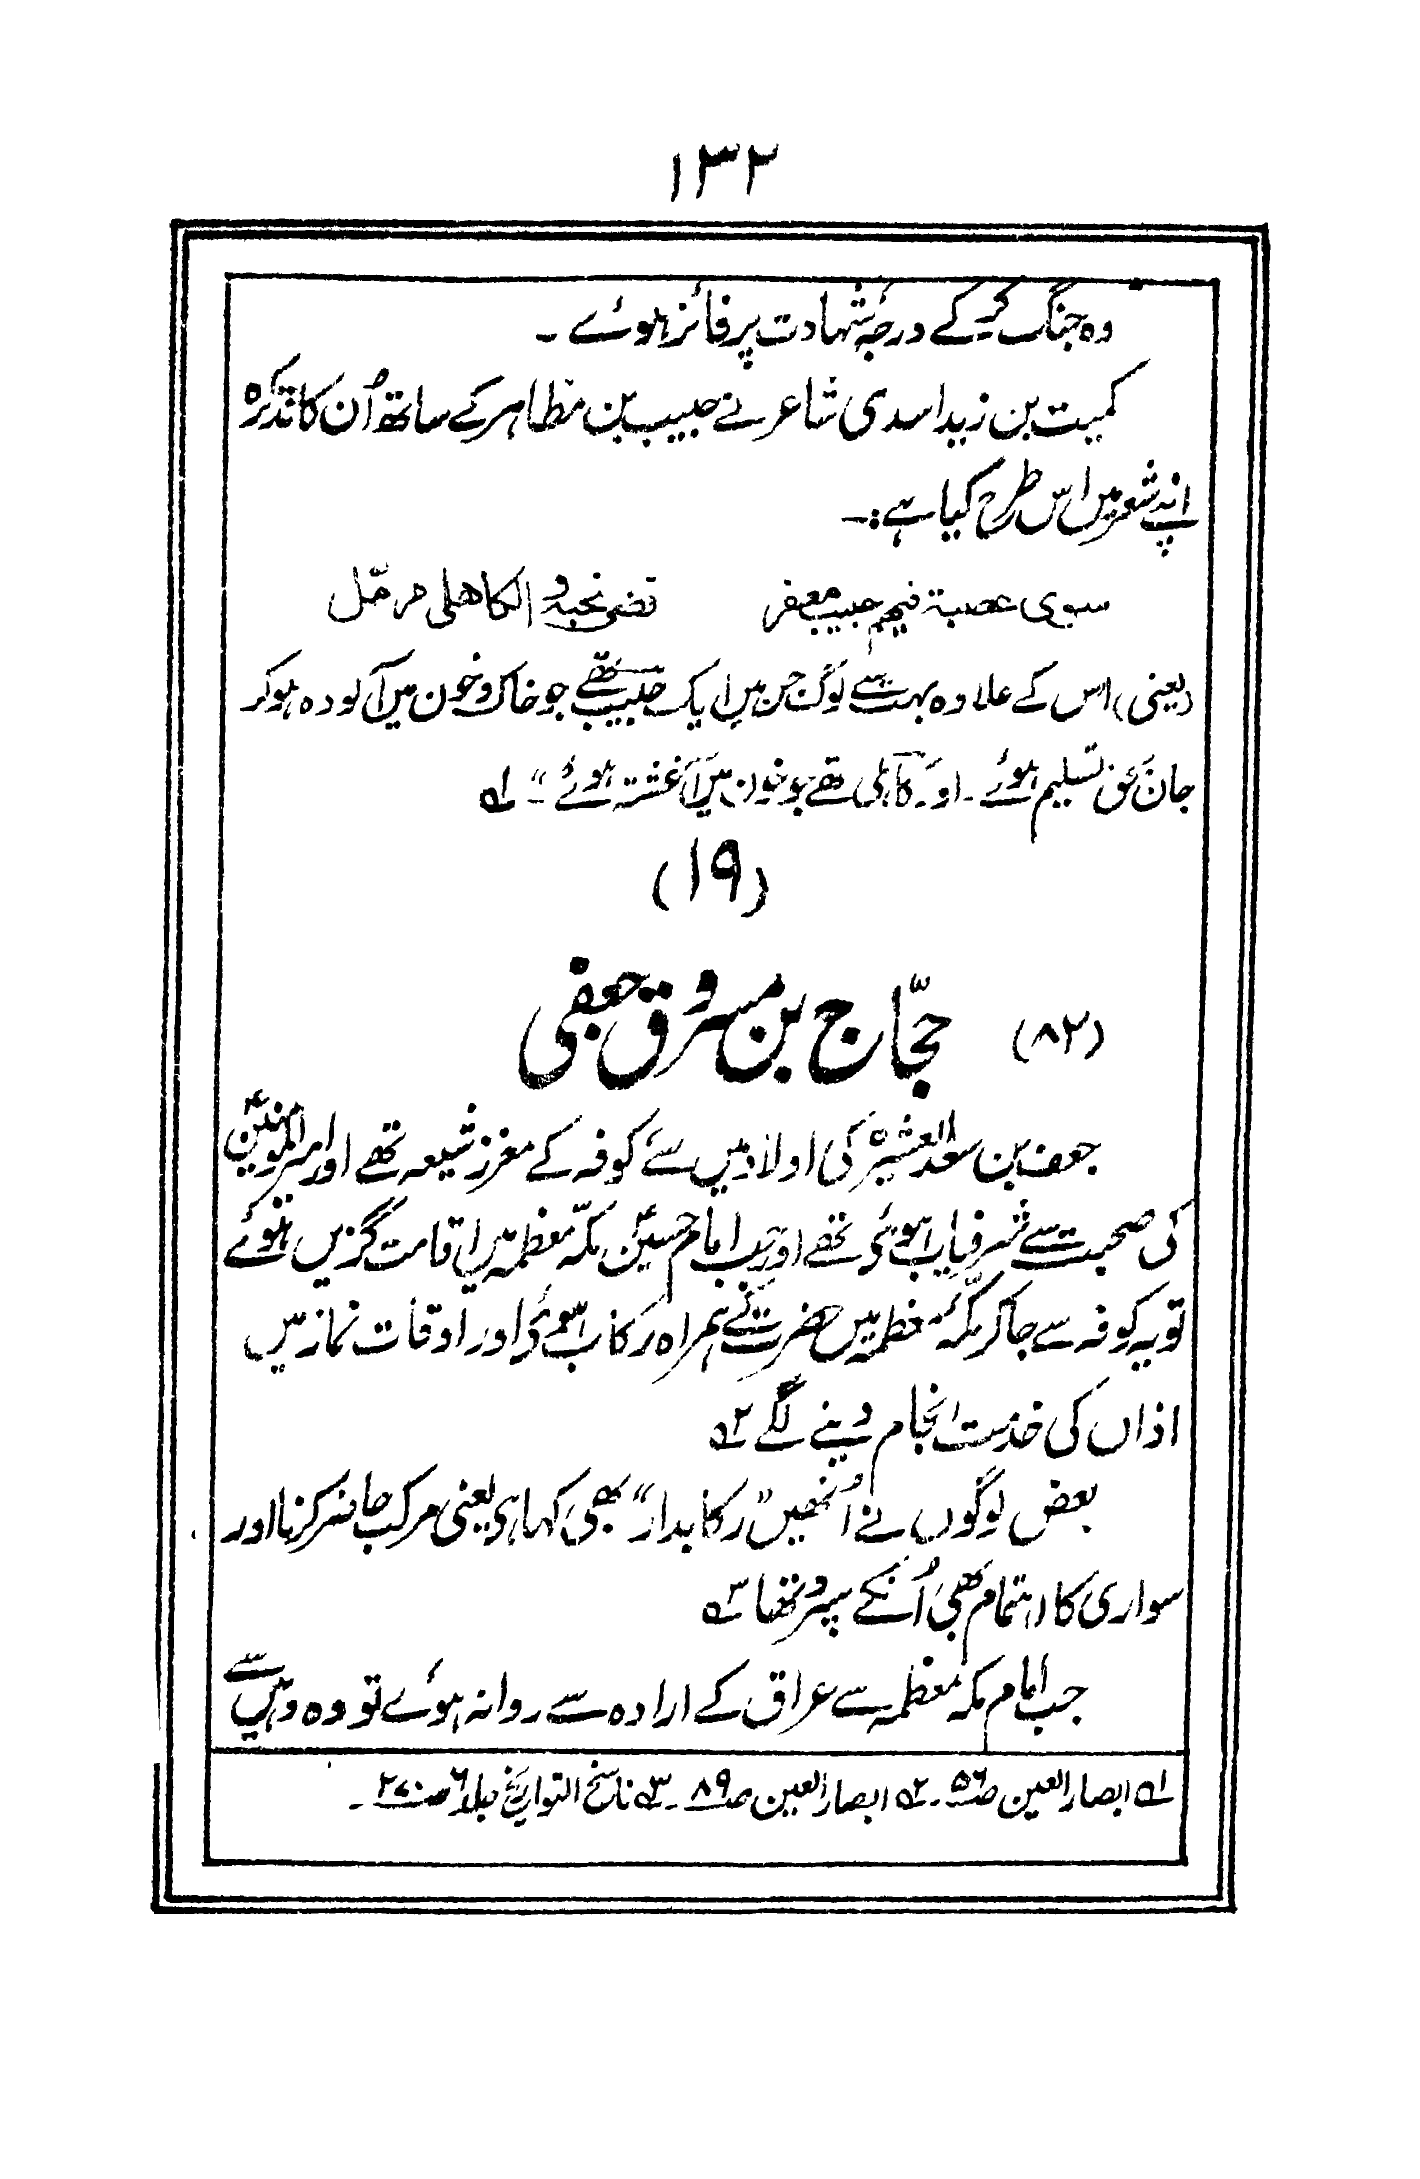 ۱۳۲
وہ جنگ کرکے درجۂ شہادت پر فائز ہوئے ۔
کمیت بن زید اسدی شاعر نے حبیب بن مظاہر کے ساتھ اُن کا تذکرہ
اپنے شعر میں اس طرح کیا ہے :۔
سوى عصبة فيهم حبيب معفر قضى نحبه و الكاهلى مرمّل
(یعنی) اس کے علاوہ بہت سے لوگ جن میں ایک حبیب تھے جو خاک و خون میں آلودہ ہوکر
جان بحق تسلیم ہوئے ۔ اور کاہلی تھے جو خون میں آغشتہ ہوئے“ ۔ ۱؎
(۱۹)
(۸۲) حجّاج بن مسروق جعفی
جعف بن سعد العشیرہ کی اولاد میں سے کوفہ کے معزز شیعہ تھے اور امیر المومنینؑ
کی صحبت سے شرفیاب ہوئے تھے اور جب امام حسینؑ مکّہ معظمہ میں اقامت گزیں ہوئے
تو یہ کوفہ سے جاکر مکّہ معظمہ میں حضرت کے ہمراہ رکاب ہوئے اور اوقات نماز میں
اذاں کی خدمت انجام دینے لگے ۲؎
بعض لوگوں نے اُنھیں ”رکابدار“ بھی کہا ہے یعنی مرکب حاضر کرنا اور
سواری کا اہتمام بھی اُنکے سپرد تھا ۳؎
جب امام مکہ معظمہ سے عراق کے ارادہ سے روانہ ہوئے تو وہ وہیں سے
۱؎ ابصار العین ص۵۶ ۔ ۲؎ ابصار العین ص۸۹ ۔ ۳؎ ناسخ التواریخ جلد ۶ ص۲۷۰ ۔